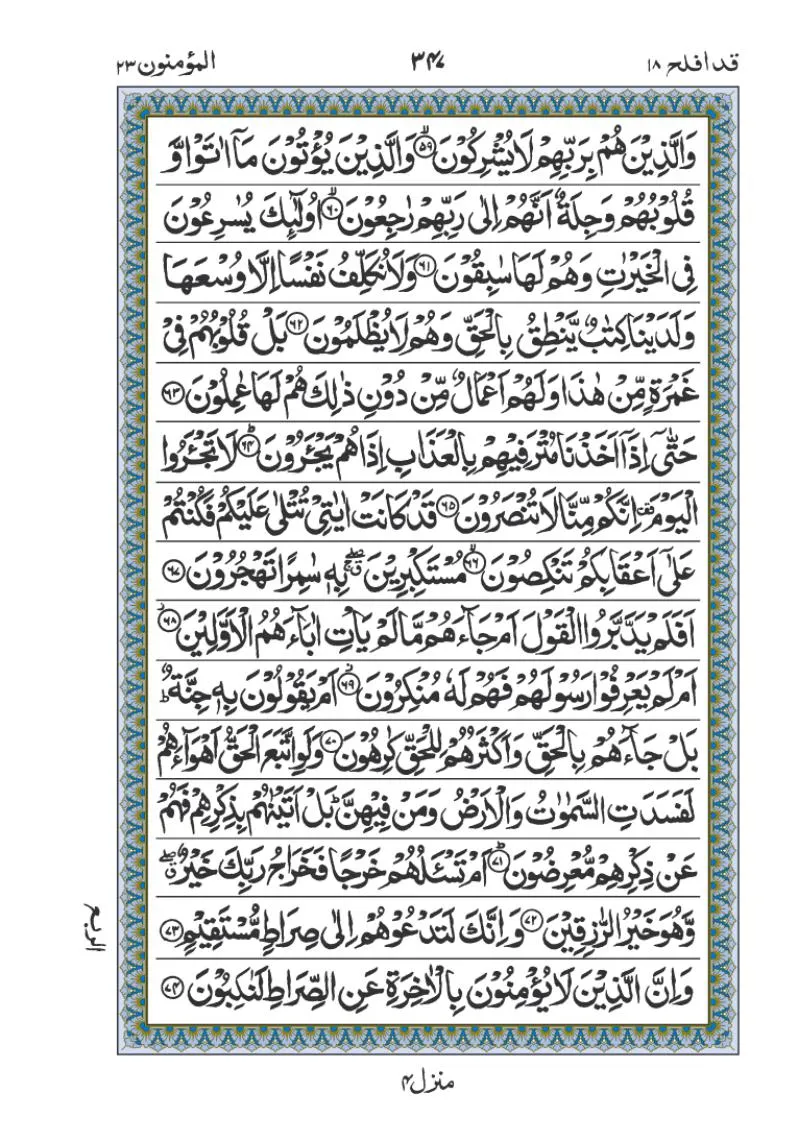 قد افلح ١٨
٣٤٧
المؤمنون ٢٣
وَالَّذِيْنَ هُمْ بِرَبِّهِمْ لَا يُشْرِكُوْنَ ۙ‏﴿۵۹﴾ وَالَّذِيْنَ يُؤْتُوْنَ مَاۤ اٰتَوْا وَّ
قُلُوْبُهُمْ وَجِلَةٌ اَنَّهُمْ اِلٰى رَبِّهِمْ رٰجِعُوْنَ ۙ‏﴿۶۰﴾ اُولٰٓئِكَ يُسٰرِعُوْنَ
فِى الْخَيْرٰتِ وَهُمْ لَهَا سٰبِقُوْنَ‏﴿۶۱﴾ وَلَا نُكَلِّفُ نَفْسًا اِلَّا وُسْعَهَا
وَلَدَيْنَا كِتٰبٌ يَّنْطِقُ بِالْحَقِّ وَهُمْ لَا يُظْلَمُوْنَ‏﴿۶۲﴾ بَلْ قُلُوْبُهُمْ فِىْ
غَمْرَةٍ مِّنْ هٰذَا وَلَهُمْ اَعْمَالٌ مِّنْ دُوْنِ ذٰلِكَ هُمْ لَهَا عٰمِلُوْنَ‏﴿۶۳﴾
حَتّٰٓى اِذَاۤ اَخَذْنَا مُتْرَفِيْهِمْ بِالْعَذَابِ اِذَا هُمْ يَجْئَرُوْنَ ؕ‏﴿۶۴﴾ لَا تَجْئَرُوا
الْيَوْمَ اِنَّكُمْ مِّنَّا لَا تُنْصَرُوْنَ‏﴿۶۵﴾ قَدْ كَانَتْ اٰيٰتِىْ تُتْلٰى عَلَيْكُمْ فَكُنْتُمْ
عَلٰٓى اَعْقَابِكُمْ تَنْكِصُوْنَ ۙ‏﴿۶۶﴾ مُسْتَكْبِرِيْنَ ۖۗ بِهٖ سٰمِرًا تَهْجُرُوْنَ‏﴿۶۷﴾
اَفَلَمْ يَدَّبَّرُوا الْقَوْلَ اَمْ جَآءَهُمْ مَّا لَمْ يَاْتِ اٰبَآءَهُمُ الْاَوَّلِيْنَ‏﴿۶۸﴾
اَمْ لَمْ يَعْرِفُوْا رَسُوْلَهُمْ فَهُمْ لَهٗ مُنْكِرُوْنَ‏﴿۶۹﴾ اَمْ يَقُوْلُوْنَ بِهٖ جِنَّةٌ ؕ
بَلْ جَآءَهُمْ بِالْحَقِّ وَاَكْثَرُهُمْ لِلْحَقِّ كٰرِهُوْنَ‏﴿۷۰﴾ وَلَوِ اتَّبَعَ الْحَقُّ اَهْوَآءَهُمْ
لَفَسَدَتِ السَّمٰوٰتُ وَالْاَرْضُ وَمَنْ فِيْهِنَّ ؕ بَلْ اَتَيْنٰهُمْ بِذِكْرِهِمْ فَهُمْ
عَنْ ذِكْرِهِمْ مُّعْرِضُوْنَ ؕ‏﴿۷۱﴾ اَمْ تَسْئَلُهُمْ خَرْجًا فَخَرَاجُ رَبِّكَ خَيْرٌ ۖۗ
وَّهُوَ خَيْرُ الرّٰزِقِيْنَ‏﴿۷۲﴾ وَاِنَّكَ لَتَدْعُوْهُمْ اِلٰى صِرَاطٍ مُّسْتَقِيْمٍ‏﴿۷۳﴾
وَاِنَّ الَّذِيْنَ لَا يُؤْمِنُوْنَ بِالْاٰخِرَةِ عَنِ الصِّرَاطِ لَنٰكِبُوْنَ‏﴿۷۴﴾
الربع
منزل ۴